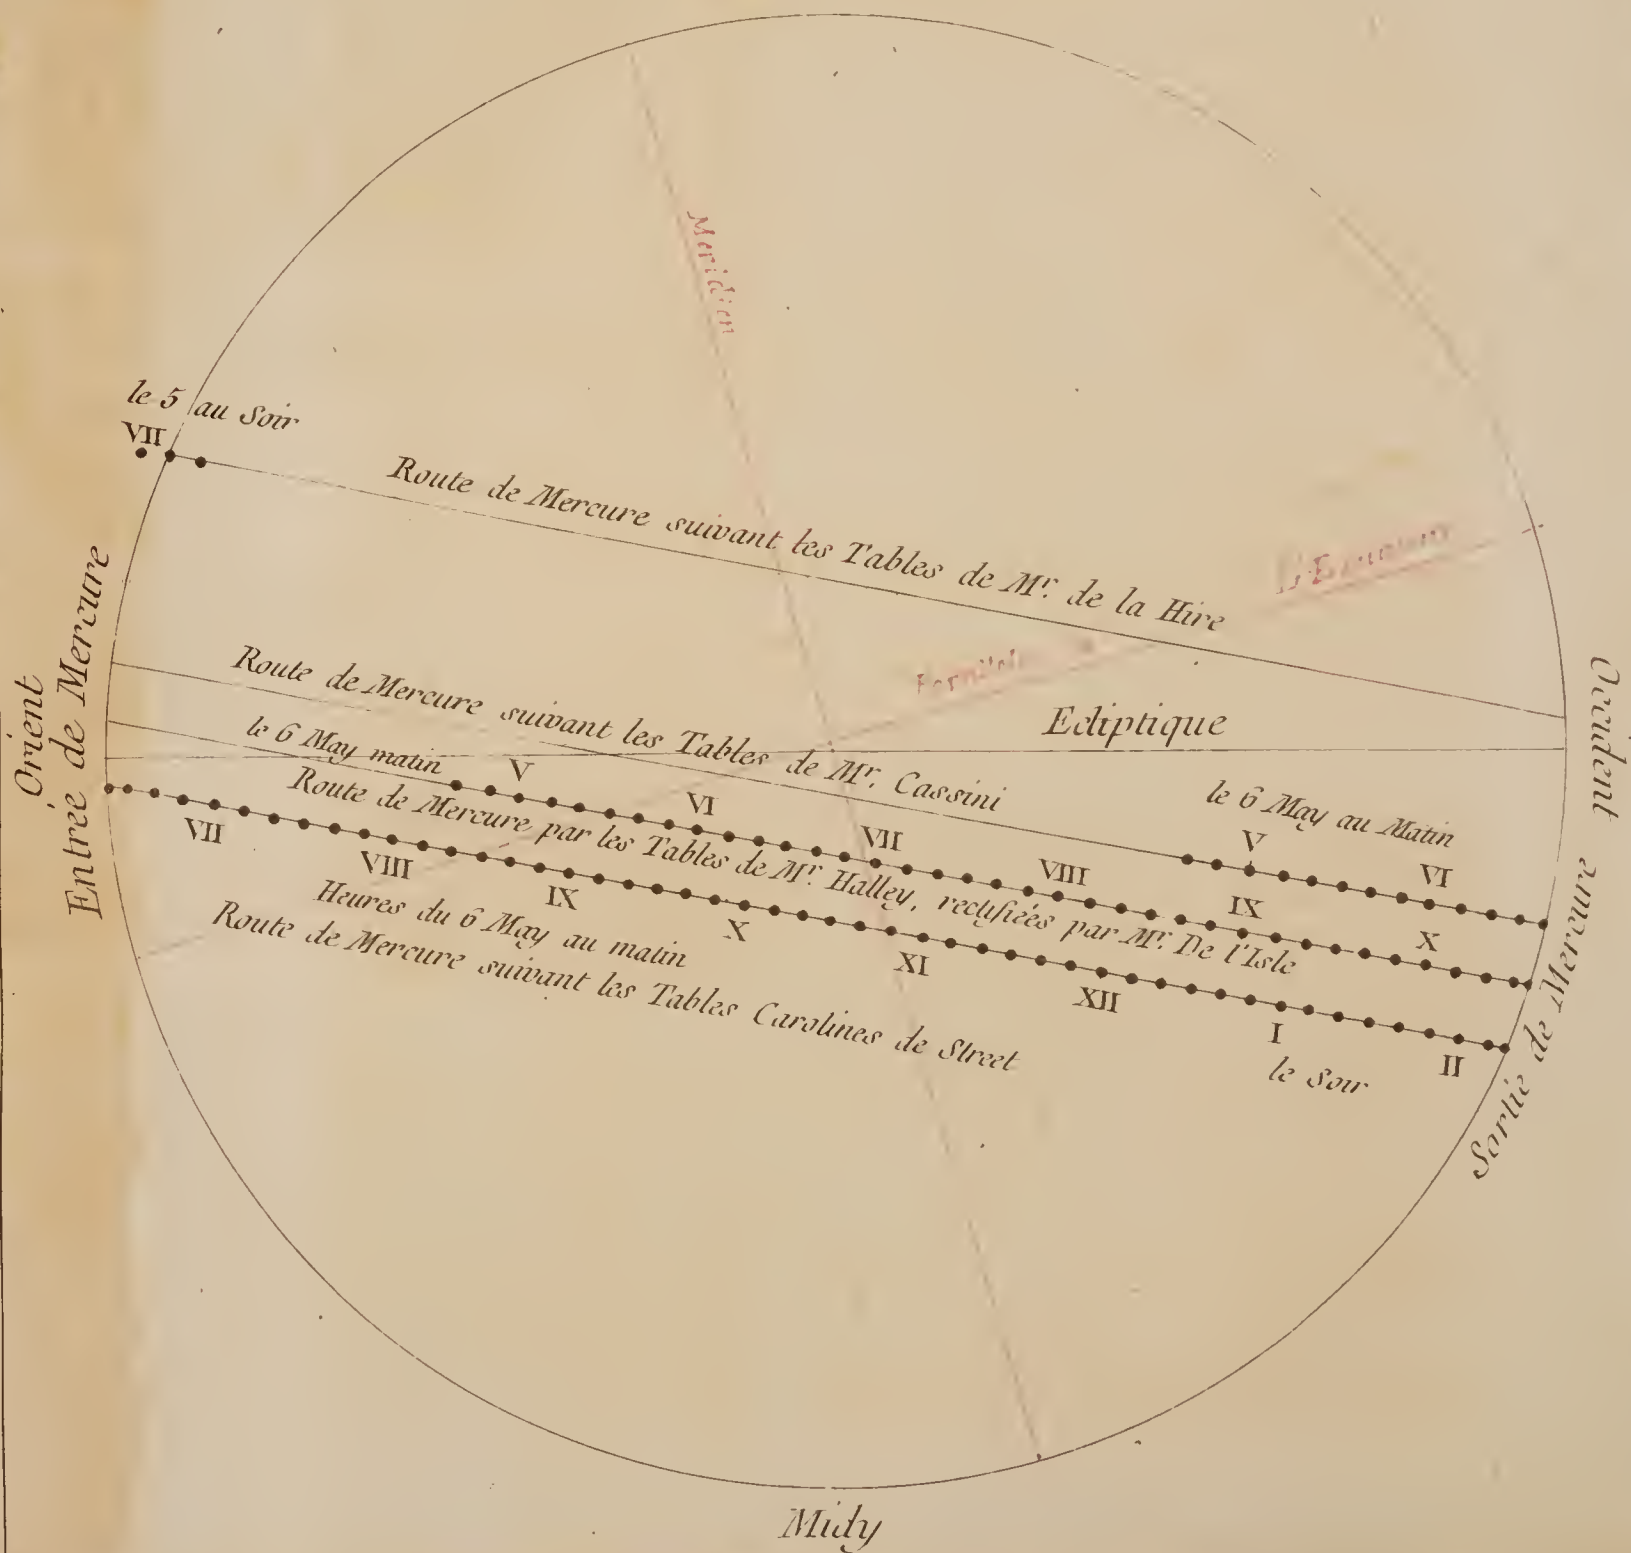 Meridien
le 5 au Soir
VII
Route de Mercure suivant les Tables de Mr. de la Hire
Orient
Entrée de Mercure
Route de Mercure suivant les Tables de Mr. Cassini
Ecliptique
Occident
le 6 May matin
V
VI
VII
VIII
IX
X
le 6 May au Matin
V
VI
Route de Mercure par les Tables de Mr. Halley, rectifiées par Mr. De l'Isle
VII
VIII
IX
X
XI
XII
I
II
Heures du 6 May au matin
le Soir
Route de Mercure suivant les Tables Carolines de Street
Sortie de Mercure
Midy